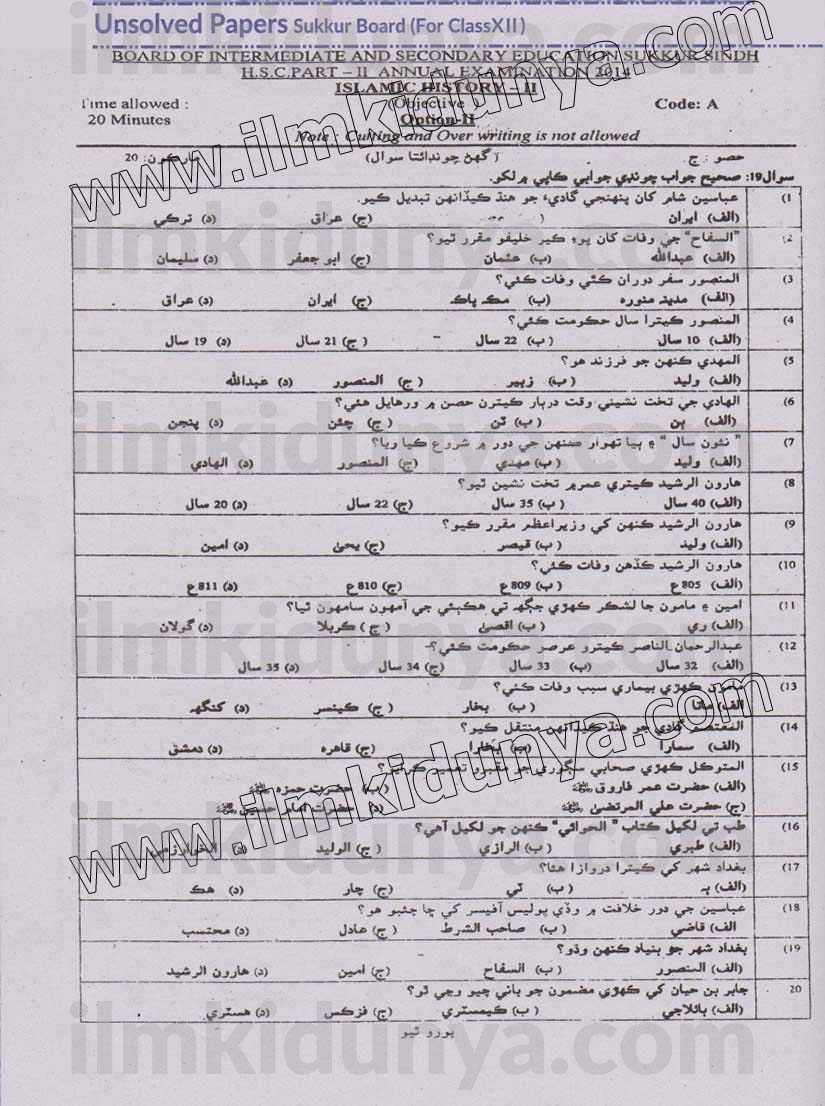 Unsolved Papers Sukkur Board (For ClassXII)
BOARD OF INTERMEDIATE AND SECONDARY EDUCATION SUKKUR SINDH
H.S.C.PART – II ANNUAL EXAMINATION 2014
ISLAMIC HISTORY – II
Time allowed : (Objective) Code: A
20 Minutes Option-II
Note : Cutting and Over writing is not allowed
حصو : ج (گهڻ چونڊائتا سوال) مارڪون: 20
سوال19: صحيح جواب چونڊي جوابي ڪاپي ۾ لکو.
1) عباسين شام کان پنهنجي گاديءَ جو هنڌ ڪيڏانهن تبديل ڪيو.
(الف) ايران (ب) (ج) عراق (د) ترڪي
2) "السفاح" جي وفات کان پوءِ ڪير خليفو مقرر ٿيو؟
(الف) عبدالله (ب) عثمان (ج) ابو جعفر (د) سليمان
3) المنصور سفر دوران ڪٿي وفات ڪئي؟
(الف) مدينه منوره (ب) مڪه پاڪ (ج) ايران (د) عراق
4) المنصور ڪيترا سال حڪومت ڪئي؟
(الف) 10 سال (ب) 22 سال (ج) 21 سال (د) 19 سال
5) المهدي ڪنهن جو فرزند هو؟
(الف) وليد (ب) زبير (ج) المنصور (د) عبدالله
6) الهادي جي تخت نشيني وقت دربار ڪيترن حصن ۾ ورهايل هئي؟
(الف) ٻن (ب) ٽن (ج) چئن (د) پنجن
7) "نئون سال" ۽ ٻيا تهوار ڪنهن جي دور ۾ شروع ڪيا ويا؟
(الف) وليد (ب) مهدي (ج) المنصور (د) الهادي
8) هارون الرشيد ڪيتري عمر ۾ تخت نشين ٿيو؟
(الف) 40 سال (ب) 35 سال (ج) 22 سال (د) 20 سال
9) هارون الرشيد ڪنهن کي وزيراعظم مقرر ڪيو؟
(الف) وليد (ب) قيصر (ج) يحيٰ (د) امين
10) هارون الرشيد ڪڏهن وفات ڪئي؟
(الف) 805ع (ب) 809ع (ج) 810ع (د) 811ع
11) امين ۽ مامون جا لشڪر ڪهڙي جڳهه تي هڪٻئي جي آمهون سامهون ٿيا؟
(الف) ري (ب) اقصيٰ (ج) ڪربلا (د) گولان
12) عبدالرحمان الناصر ڪيترو عرصو حڪومت ڪئي؟
(الف) 32 سال (ب) 33 سال (ج) 34 سال (د) 35 سال
13) مامون ڪهڙي بيماري سبب وفات ڪئي؟
(الف) ماتا (ب) بخار (ج) ڪينسر (د) کنگهه
14) المعتصم گادي جو هنڌ ڪيڏانهن منتقل ڪيو؟
(الف) سمارا (ب) بخارا (ج) قاهره (د) دمشق
15) المتوڪل ڪهڙي صحابي سڳوري جو مقبرو تعمير ڪرايو؟
(الف) حضرت عمر فاروق (ب) حضرت حمزه
(ج) حضرت علي المرتضيٰ (د) حضرت امام حسين
16) طب تي لکيل ڪتاب "الحوائي" ڪنهن جو لکيل آهي؟
(الف) طبري (ب) الرازي (ج) الوليد (د) الخوارزمي
17) بغداد شهر کي ڪيترا دروازا هئا؟
(الف) ٻه (ب) ٽي (ج) چار (د) هڪ
18) عباسين جي دور خلافت ۾ وڏي پوليس آفيسر کي ڇا چئبو هو؟
(الف) قاضي (ب) صاحب الشرط (ج) عادل (د) محتسب
19) بغداد شهر جو بنياد ڪنهن وڌو؟
(الف) المنصور (ب) السفاح (ج) امين (د) هارون الرشيد
20 جابر بن حيان کي ڪهڙي مضمون جو باني چيو وڃي ٿو؟
(الف) بائلاجي (ب) ڪيمسٽري (ج) فزڪس (د) هسٽري
پورو ٿيو
www.ilmkidunya.com
www.ilmkidunya.com
ilmkidunya